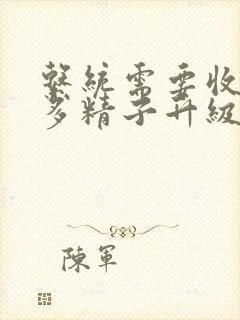 繫統需要收
多精子升級
陳軍